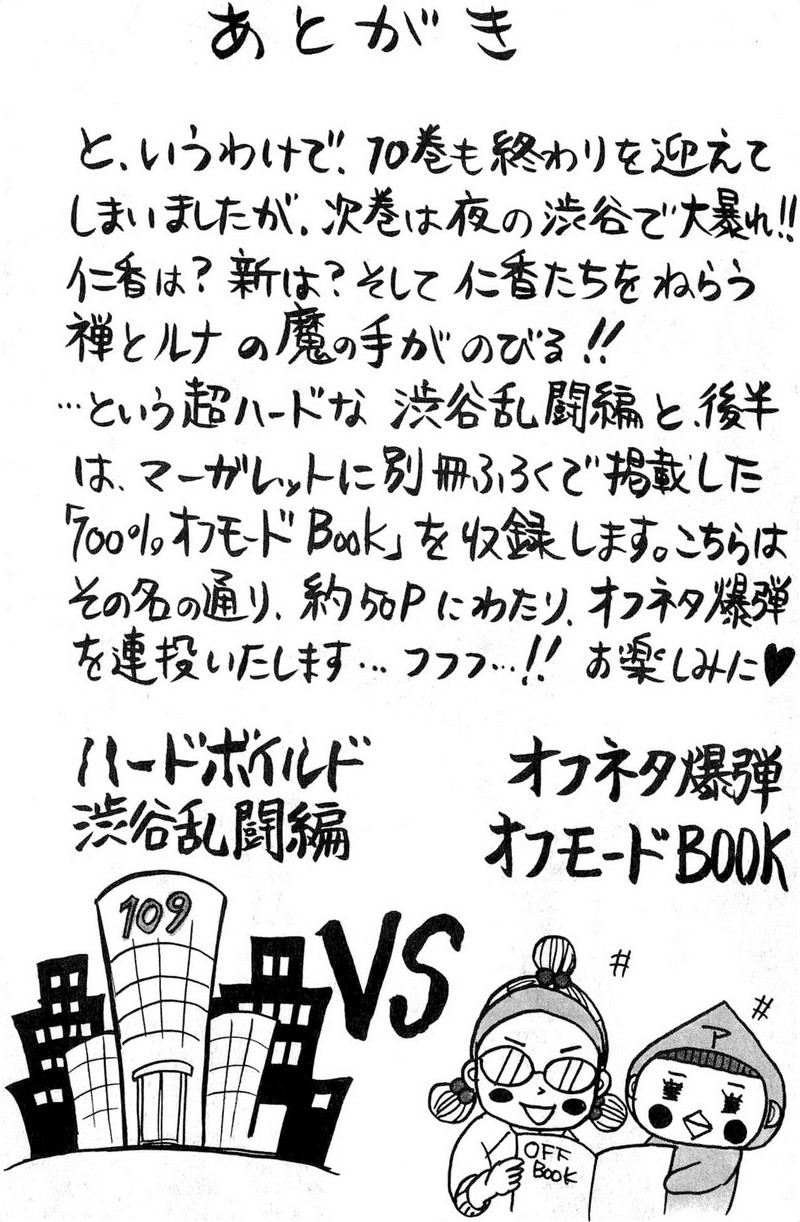 あとがき
と、いうわけで、10巻も終わりを迎えて
しまいましたが、次巻は夜の渋谷で大暴れ!!
仁香は?新は?そして仁香たちをねらう
禅とルナの魔の手がのびる!!
…という超ハードな渋谷乱闘編と、後半
は、マーガレットに別冊ふろくで掲載した
「100%オフモードBook」を収録します。こちらは
その名の通り、約50Pにわたり、オフネタ爆弾
を連投いたします…フフフ…!!お楽しみに♥
ハードボイルド
渋谷乱闘編
オフネタ爆弾
オフモードBOOK
109
VS
ア
OFF
BOOK